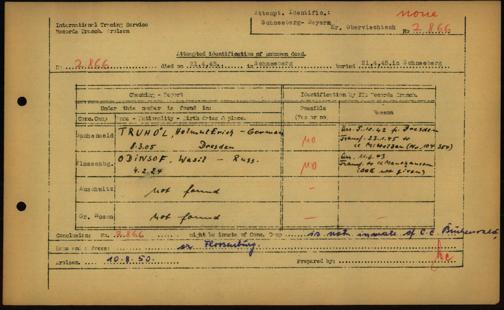 International Tracing Service
Records Branch. Arolsen
Attempt. Identific.:
Schneeberg- Bayern
Kr. Oberviechtach
none
No 2.866
Attempted identification of unknown dead.
2.866 died on 21.4.45. in Schneeberg buried 21.4.45. in Schneeberg
Checking - Report
Identification by ITS Records Branch.
Under this number is found in:
Possible (Yes or no
Reason
Conc.Camp Name - Nationality - Birth dates & place.
TRUHOL, Helmut Erich - German
8.3.05 Dresden
no
Arr. 5.10.42 fr. Dresden
Transf. 23.1.45 to
Flossenbg.
ODINSOF, Wasil - Russ.
4.2.24
no
Transf. to Mauthausen
(date not given)
Auschwitz
not found
-
-
Gr. Rosen
not found
-
-
Conclusion: No. 2.866 might be inmate of Conc. Camp is not inmate of C.C. Buchenwald,
or Flossenbürg
Arolsen, 10.8.50.
Prepared by: